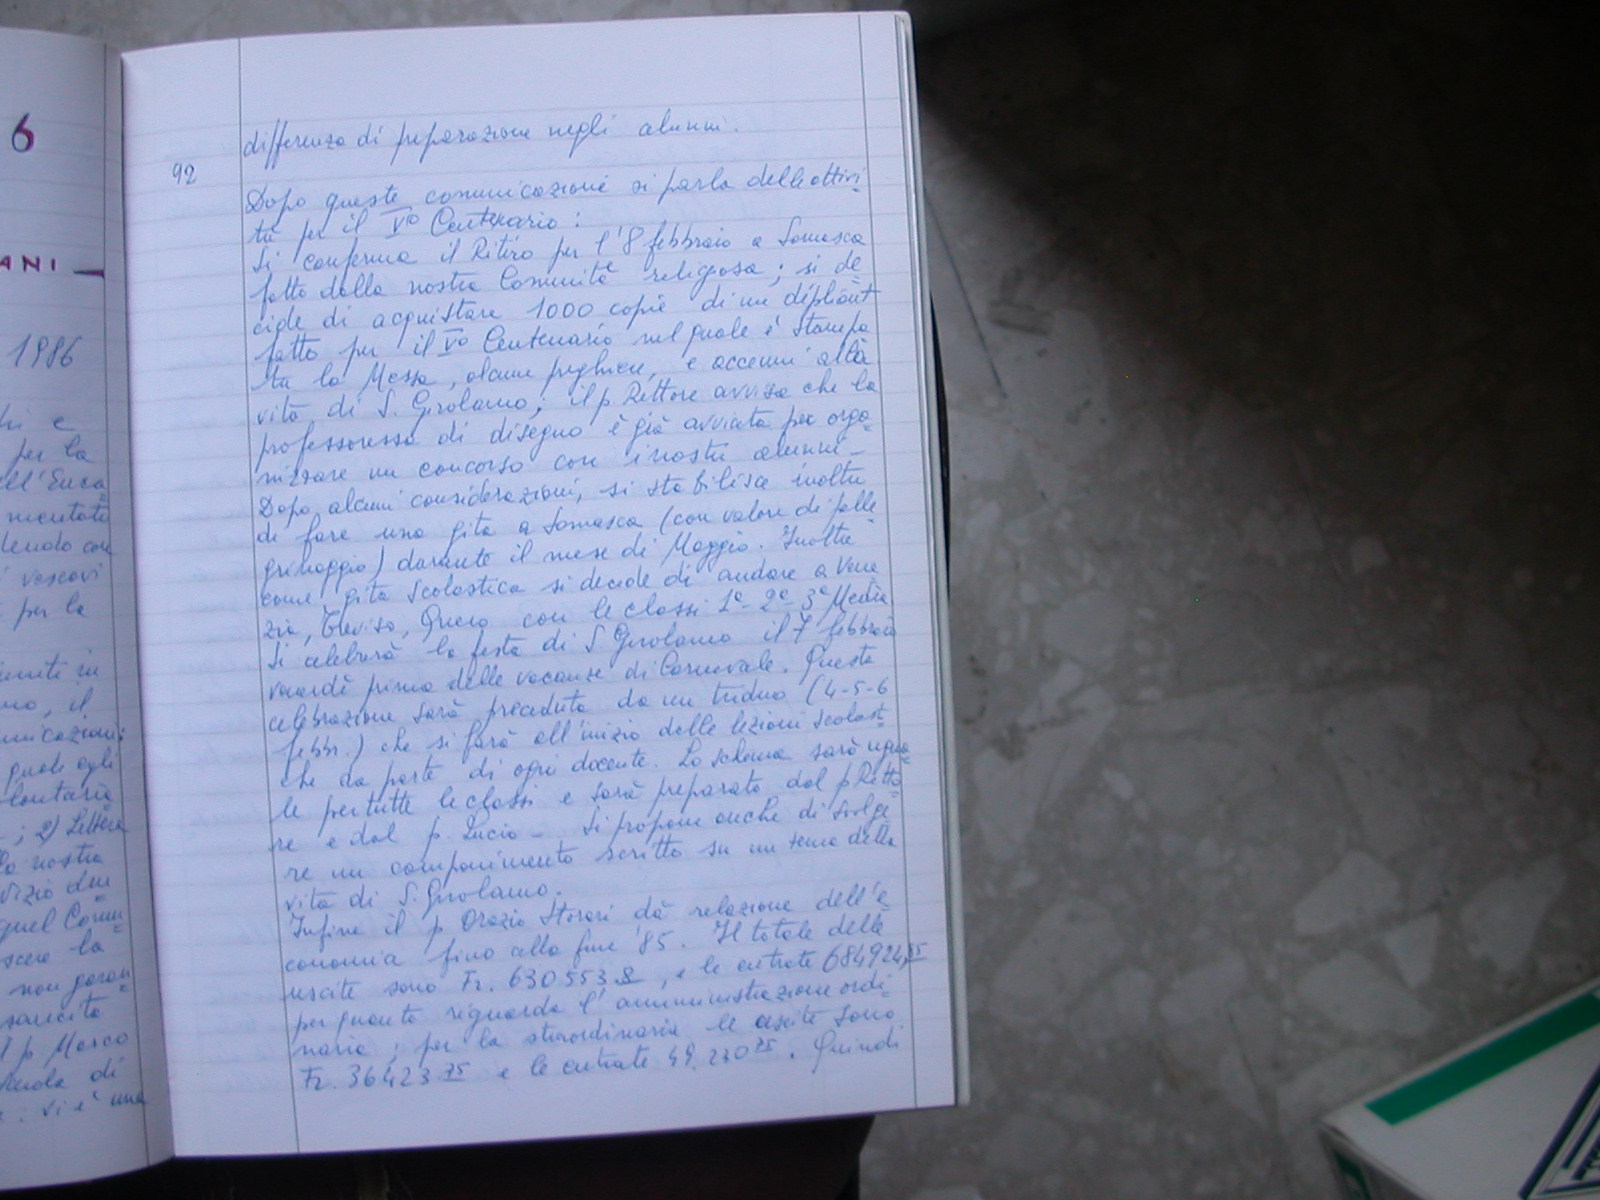 6
ANI —
1986
hi e
per la
ell'Euca=
mentato
dendo con
i vescovi
per la
uniti in
no, il
unicazioni:
quale egli
lontaria
; 2) Lettera
lo nostra
vizio den
quel Comu=
scere la
non garan=
sancito
l p Marco
cuola di
: vi e' una
differenza di preparazione negli alunni.
92
Dopo queste comunicazioni si parla delle attivi=
tà per il V° Centenario:
Si conferma il Ritiro per l'8 febbraio a Somasca
fatto dalla nostra Comunità religiosa; si de=
cide di acquistare 1000 copie di un dépliant
fatto per il V° Centenario nel quale è stampa=
ta la Messa, alcune preghiere, e accenni alla
vita di S. Girolamo; il p. Rettore avvisa che la
professoressa di disegno è già avviata per orga=
nizzare un concorso con i nostri alunni –
Dopo alcuni considerazioni, si stabilisce inoltre
di fare una gita a Somasca (con valore di pelle=
grinaggio) durante il mese di Maggio. Inoltre
come gita scolastica si decide di andare a Vene=
zia, Treviso, Quero con le classi 1ª- 2ª- 3ª Media
Si celebrerà la festa di S Girolamo il 7 febbraio
venerdì prima delle vacanze di Carnevale. Questa
celebrazione sarà preceduta da un triduo (4-5-6
febbr.) che si farà all'inizio delle lezioni scolasti=
che da parte di ogni docente. Lo schema sarà ugua=
le per tutte le classi e sarà preparato dal p Retto=
re e dal p. Lucio – Si propone anche di svolge=
re un componimento scritto su un tema della
vita di S. Girolamo.
Infine il p Orazio Storari dà relazione dell'e=
conomia fino alla fine '85. Il totale delle
uscite sono Fr. 630553.8, e le entrate 684924,85
per quanto riguarda l'amministrazione ordi=
naria; per la straordinaria le uscite sono
Fr. 36423.75 e le entrate 49.230 75. Quindi